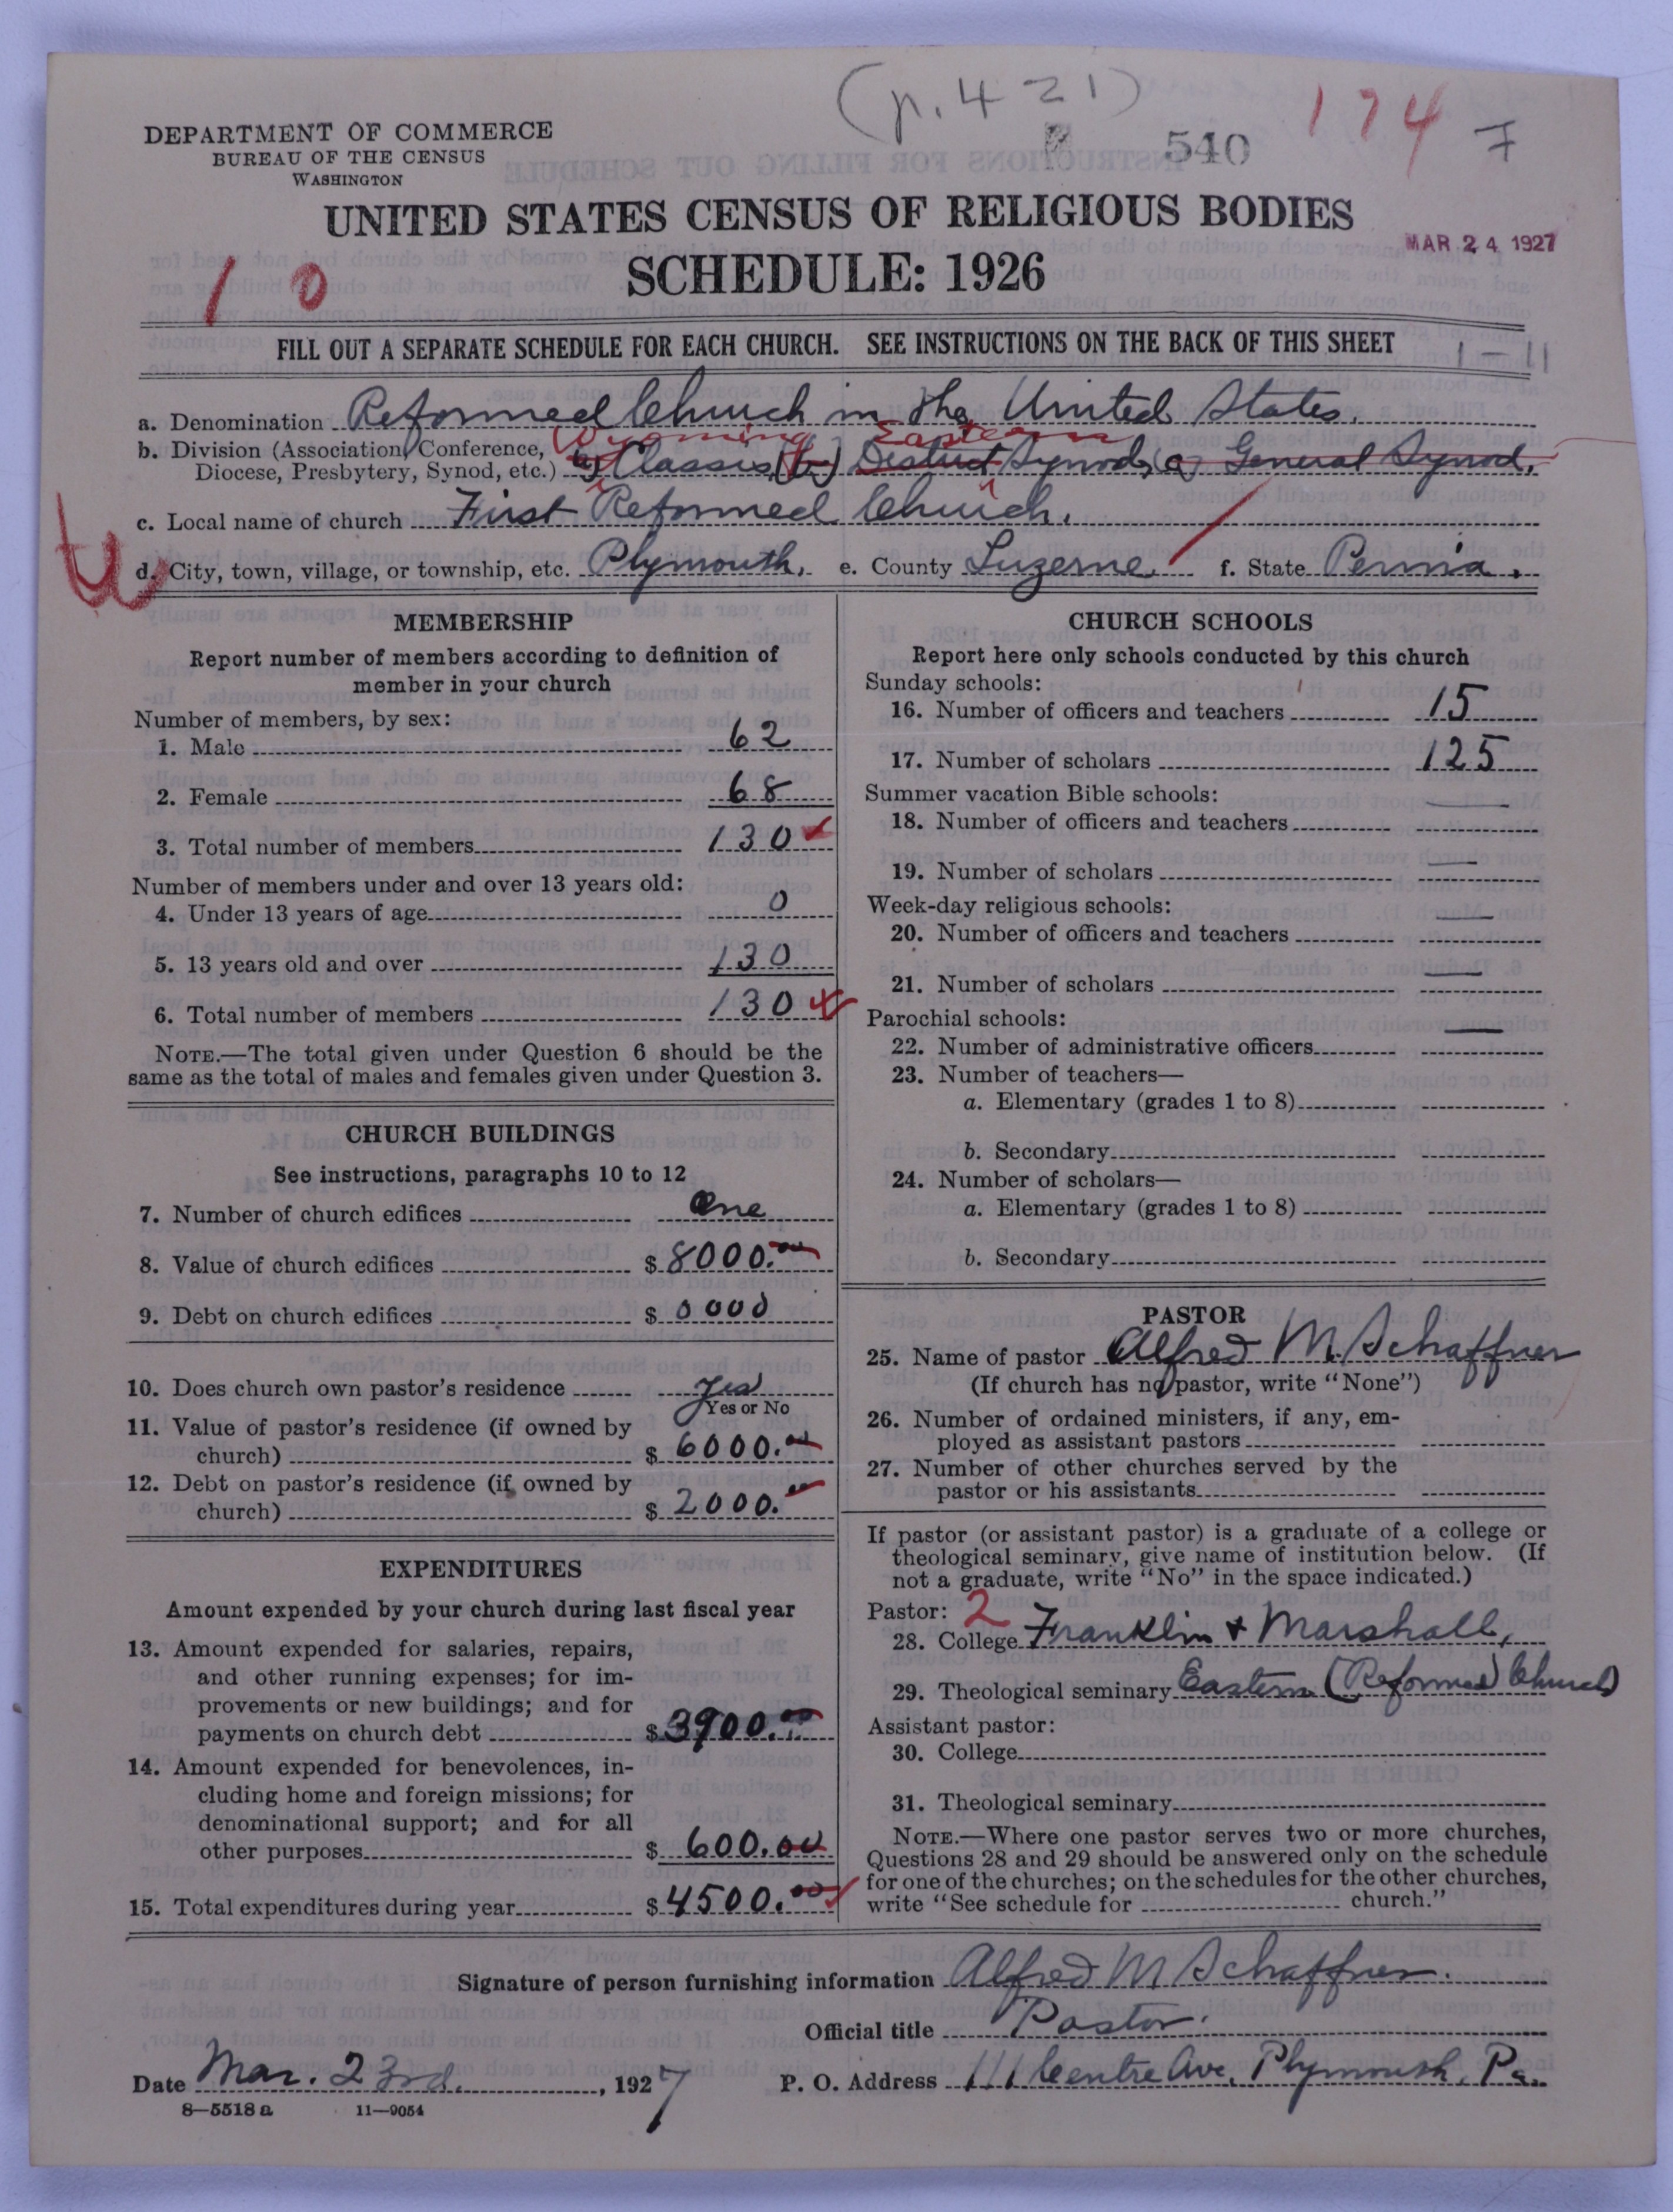 (p. 421)
174
7
540
DEPARTMENT OF COMMERCE
BUREAU OF THE CENSUS
WASHINGTON
UNITED STATES CENSUS OF RELIGIOUS BODIES
MAR 24 1927
SCHEDULE: 1926
10
FILL OUT A SEPARATE SCHEDULE FOR EACH CHURCH. SEE INSTRUCTIONS ON THE BACK OF THIS SHEET
1-11
a. Denomination Reformed Church in the United States.
b. Division (Association, Conference, Wyoming Eastern
Diocese, Presbytery, Synod, etc.) a) Classis (b) District Synod, (c) General Synod.
c. Local name of church First Reformed Church.
d. City, town, village, or township, etc. Plymouth, e. County Luzerne. f. State Penna.
MEMBERSHIP
Report number of members according to definition of
member in your church
Number of members, by sex:
1. Male 62
2. Female 68
3. Total number of members 130
Number of members under and over 13 years old:
4. Under 13 years of age 0
5. 13 years old and over 130
6. Total number of members 130
NOTE.—The total given under Question 6 should be the
same as the total of males and females given under Question 3.
CHURCH BUILDINGS
See instructions, paragraphs 10 to 12
7. Number of church edifices One
8. Value of church edifices $ 8000.00
9. Debt on church edifices $ 0000
10. Does church own pastor's residence Yes
Yes or No
11. Value of pastor's residence (if owned by
church) $ 6000.00
12. Debt on pastor's residence (if owned by
church) $ 2000.00
EXPENDITURES
Amount expended by your church during last fiscal year
13. Amount expended for salaries, repairs,
and other running expenses; for im-
provements or new buildings; and for
payments on church debt $ 3900.00
14. Amount expended for benevolences, in-
cluding home and foreign missions; for
denominational support; and for all
other purposes $ 600.00
15. Total expenditures during year $ 4500.00
CHURCH SCHOOLS
Report here only schools conducted by this church
Sunday schools:
16. Number of officers and teachers 15
17. Number of scholars 125
Summer vacation Bible schools:
18. Number of officers and teachers —
19. Number of scholars —
Week-day religious schools:
20. Number of officers and teachers —
21. Number of scholars —
Parochial schools:
22. Number of administrative officers —
23. Number of teachers—
a. Elementary (grades 1 to 8)
b. Secondary
24. Number of scholars—
a. Elementary (grades 1 to 8)
b. Secondary
PASTOR
25. Name of pastor Alfred M. Schaffner
(If church has no pastor, write "None")
26. Number of ordained ministers, if any, em-
ployed as assistant pastors
27. Number of other churches served by the
pastor or his assistants
If pastor (or assistant pastor) is a graduate of a college or
theological seminary, give name of institution below. (If
not a graduate, write "No" in the space indicated.)
Pastor: 2
28. College Franklin & Marshall,
29. Theological seminary Eastern (Reformed Church)
Assistant pastor:
30. College
31. Theological seminary
NOTE.—Where one pastor serves two or more churches,
Questions 28 and 29 should be answered only on the schedule
for one of the churches; on the schedules for the other churches,
write "See schedule for church."
Signature of person furnishing information Alfred M Schaffner.
Official title Pastor.
Date Mar. 23rd., 1927 P. O. Address 111 Centre Ave, Plymouth, Pa.
8—5518 a 11—9054